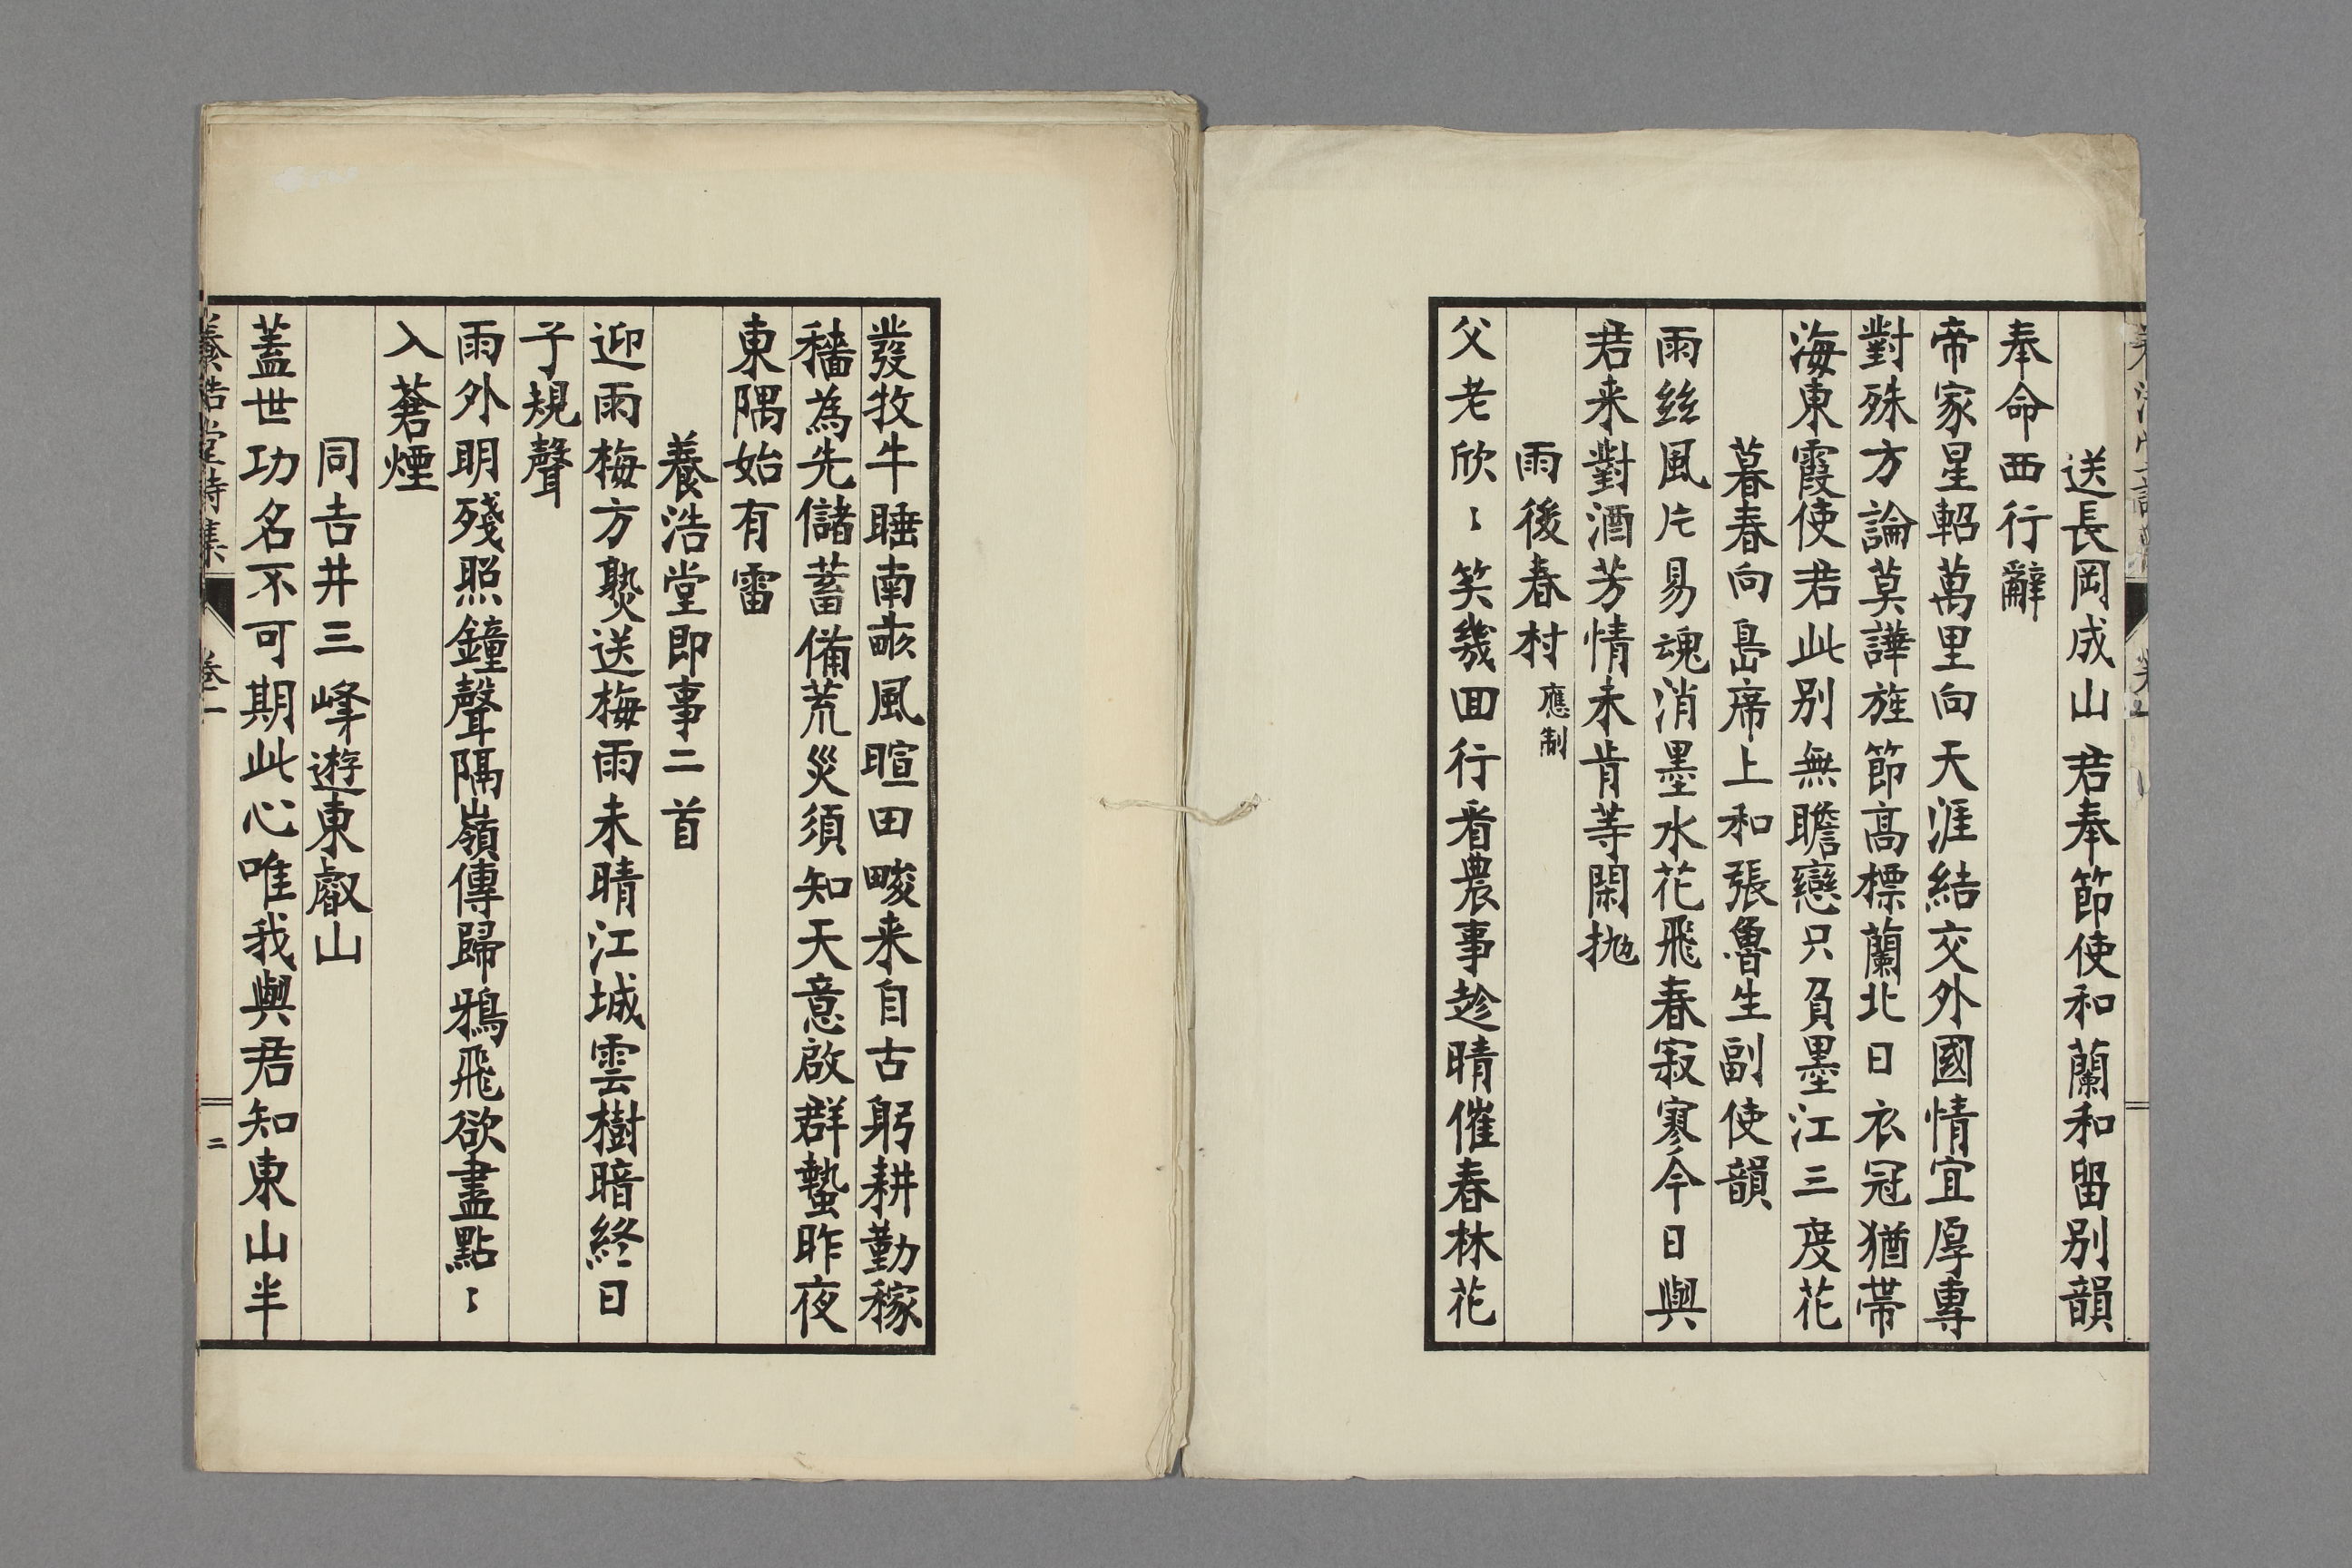 送長岡成山君奉節使和蘭和留别韻
奉命西行辭
帝家星軺萬里向天涯結交外國情宜厚專
對殊方論莫譁旌節高標蘭北日衣冠猶帶
海東霞使君此别無瞻戀只負墨江三度花
暮春向島席上和張魯生副使韻
雨絲風片易魂消墨水花飛春寂寥今日與
君来對酒芳情未肯等閑抛
雨後春村應制
父老欣〻笑幾回行看農事趁晴催春林花
發牧牛睡南畝風暄田畯来自古躬耕勤稼
穡為先儲蓄備荒災須知天意啟群蟄昨夜
東隅始有雷
養浩堂即事二首
迎雨梅方熟送梅雨未晴江城雲樹暗終日
子規聲
雨外明殘照鐘聲隔嶺傳歸鴉飛欲盡點〻
入蒼煙
同吉井三峰遊東叡山
蓋世功名不可期此心唯我與君知東山半
養浩堂詩集 卷二 二